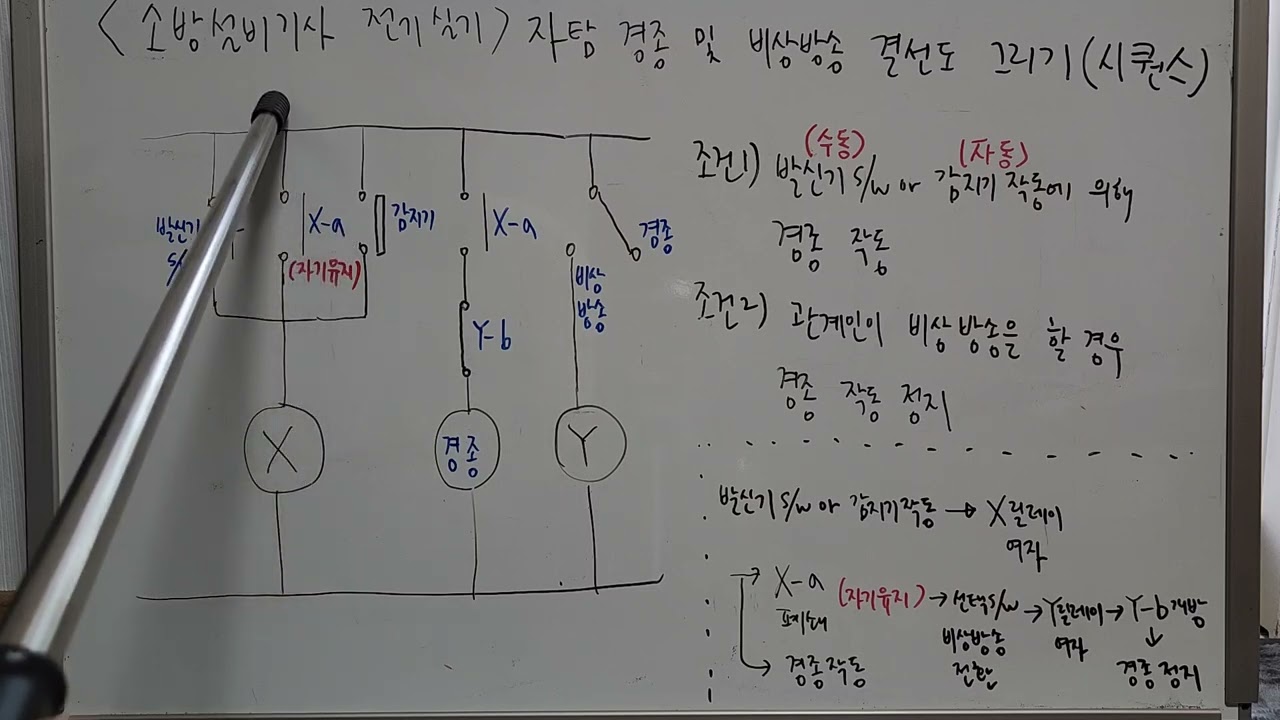 <소방설비기사 전기실기> 자탐 경종 및 비상방송 결선도 그리기(시퀀스)
발신기
S/
X-a
(자기유지)
감지기
X-a
Y-b
비상
방송
경종
X
경종
Y
(수동) (자동)
조건1) 발신기 S/W or 감지기 작동에 의해
경종 작동
조건2) 관계인이 비상방송을 할 경우
경종 작동 정지
발신기 S/W or 감지기작동 → X릴레이
여자
→ X-a (자기유지) → 선택S/W → Y릴레이 → Y-b 개방
폐쇄 비상방송 여자 ↓
→ 경종작동 전환 경종정지